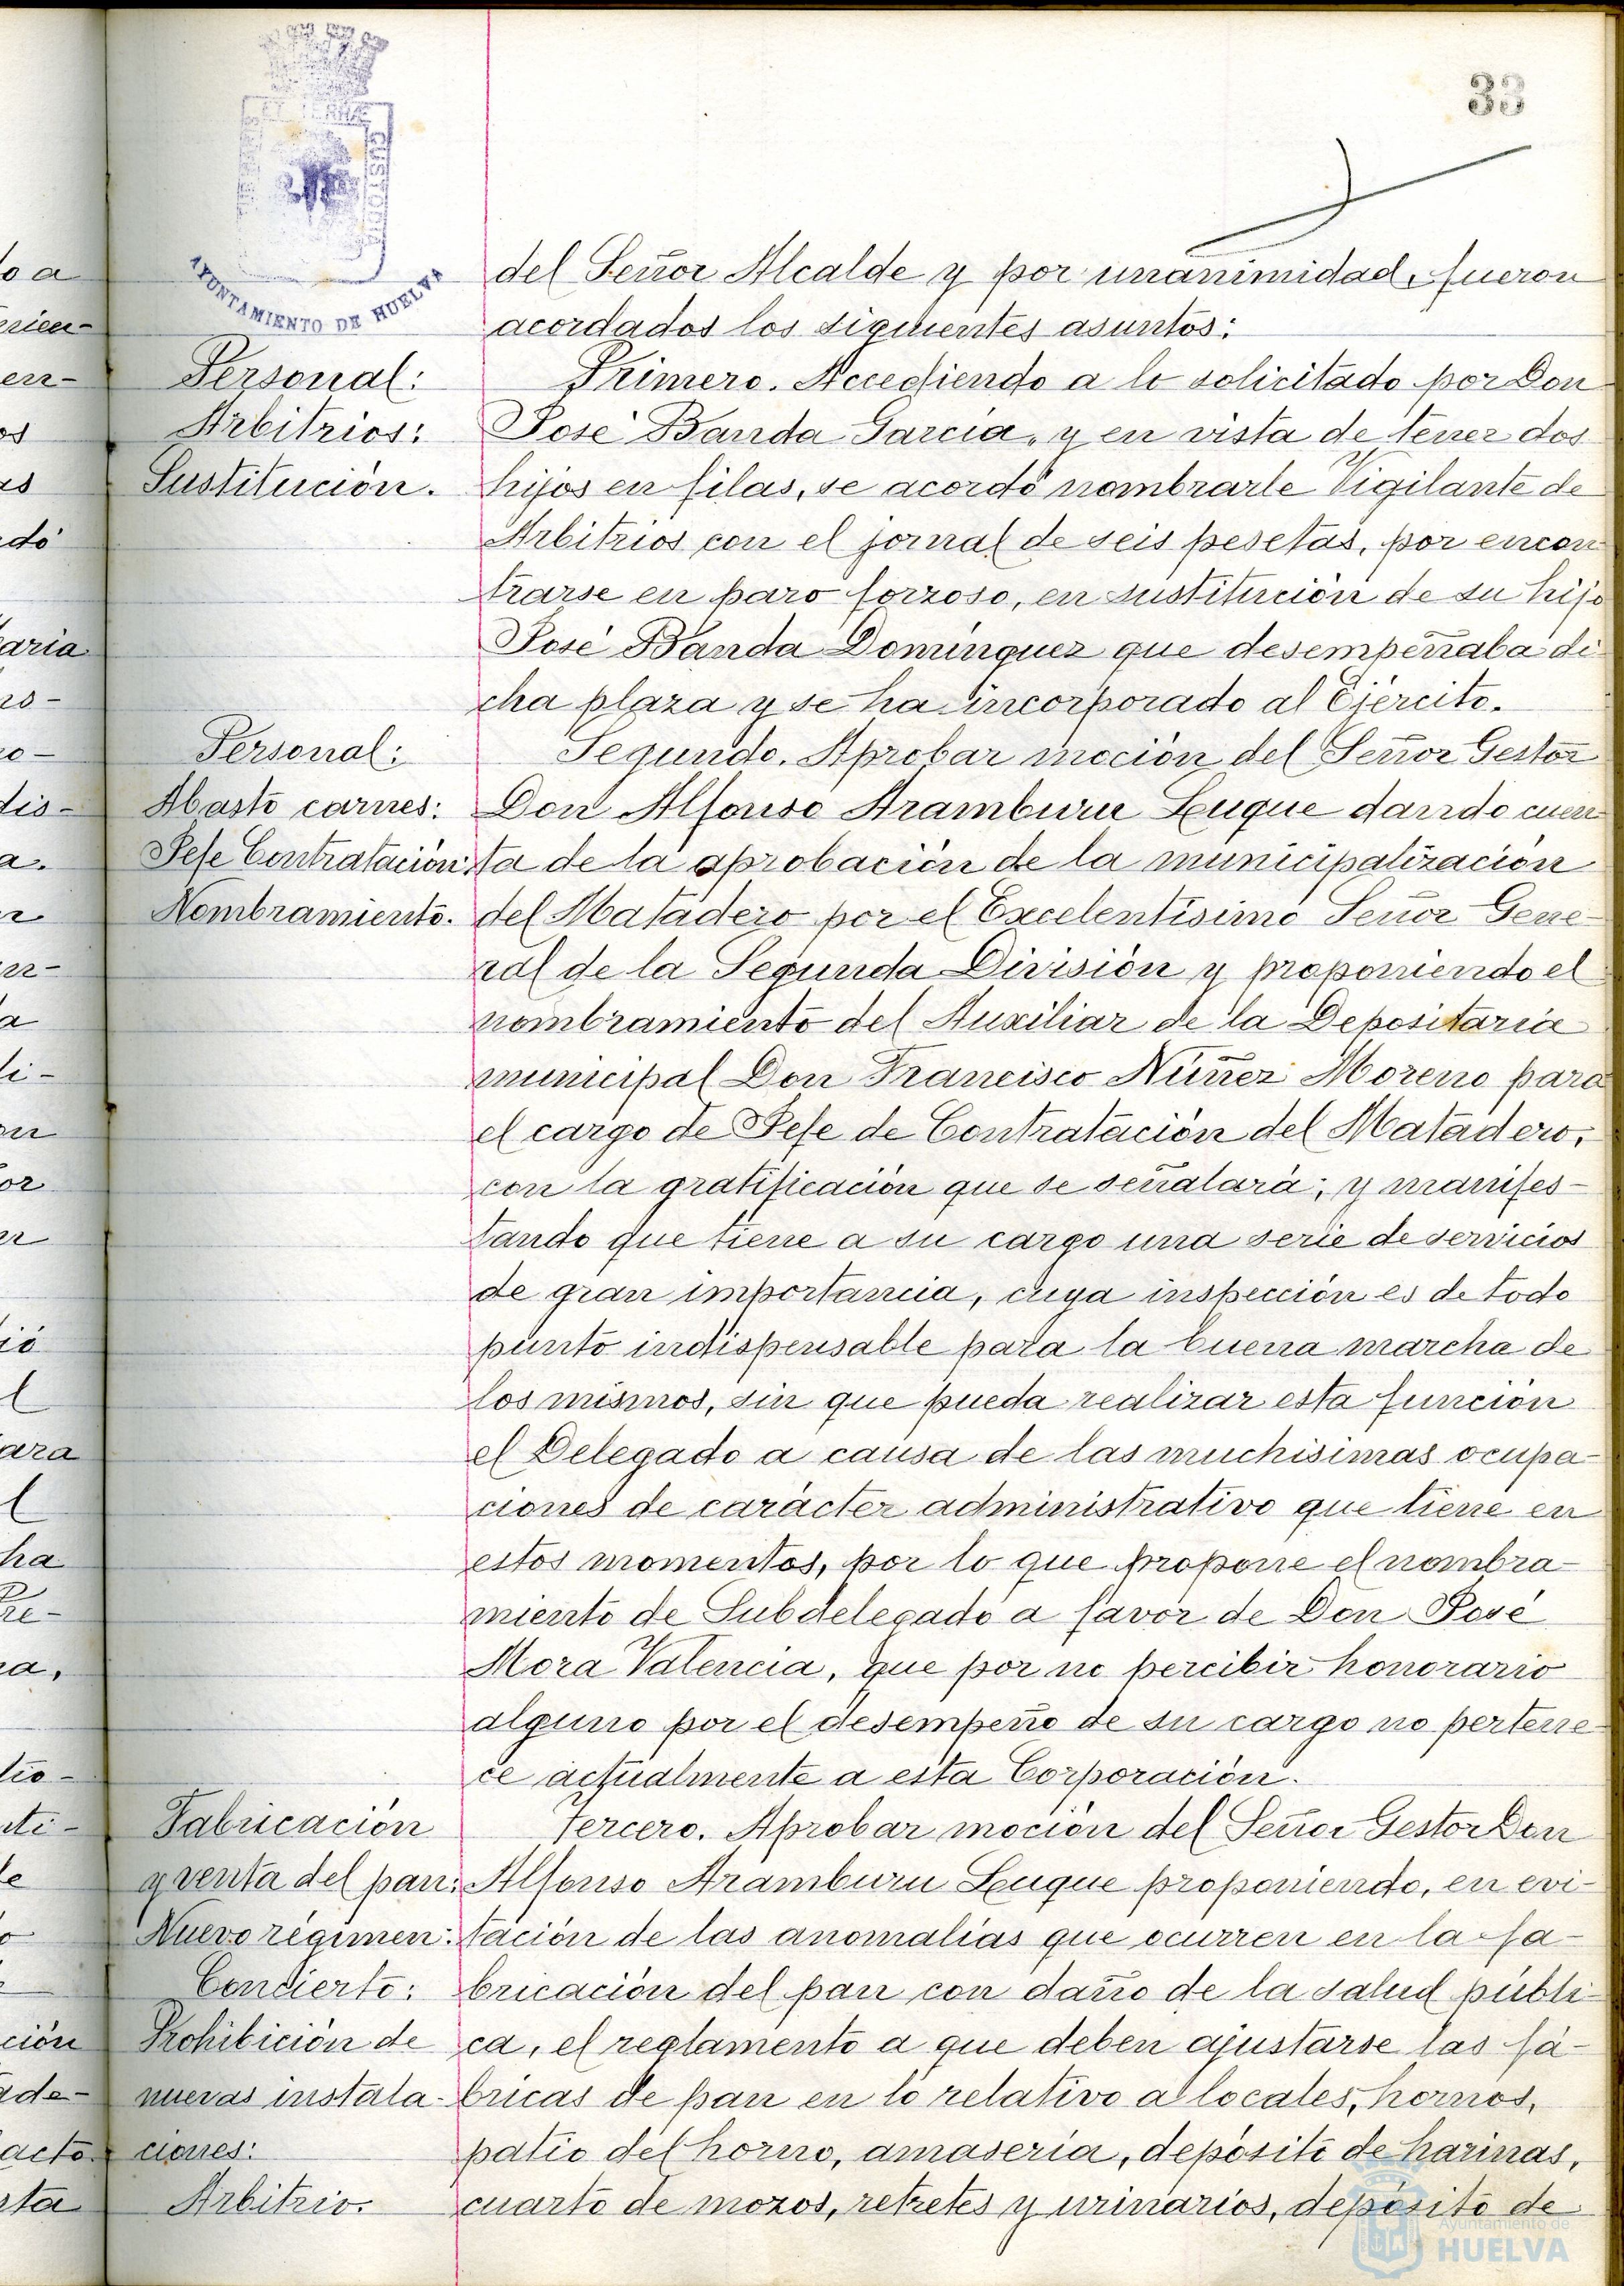 33
AYUNTAMIENTO DE HUELVA
del Señor Alcalde y por unanimidad, fueron
acordados los siguientes asuntos:
Personal:
Arbitrios:
Sustitución.
Primero. Accediendo a lo solicitado por Don
José Banda García, y en vista de tener dos
hijos en filas, se acordó nombrarle Vigilante de
Arbitrios con el jornal de seis pesetas, por encon
trarse en paro forzoso, en sustitución de su hijo
José Banda Domínguez que desempeñaba di
cha plaza y se ha incorporado al Ejército.
Personal:
Abasto carnes:
Jefe Contratación:
Nombramiento.
Segundo. Aprobar moción del Señor Gestor
Don Alfonso Aramburu Luque dando cuen
ta de la aprobación de la municipalización
del Matadero por el Excelentísimo Señor Gene-
ral de la Segunda División y proponiendo el
nombramiento del Auxiliar de la Depositaría
municipal Don Francisco Núñez Moreno para
el cargo de Jefe de Contratación del Matadero,
con la gratificación que se señalará; y manifes-
tando que tiene a su cargo una serie de servicios
de gran importancia, cuya inspección es de todo
punto indispensable para la buena marcha de
los mismos, sin que pueda realizar esta función
el Delegado a causa de las muchísimas ocupa-
ciones de carácter administrativo que tiene en
estos momentos, por lo que propone el nombra-
miento de Subdelegado a favor de Don José
Mora Valencia, que por no percibir honorario
alguno por el desempeño de su cargo no pertene-
ce actualmente a esta Corporación.
Fabricación
y venta del pan:
Nuevo régimen:
Concierto:
Prohibición de
nuevas instala-
ciones:
Arbitrio.
Tercero. Aprobar moción del Señor Gestor Don
Alfonso Aramburu Luque proponiendo, en evi-
tación de las anomalías que ocurren en la fa-
bricación del pan con daño de la salud públi-
ca, el reglamento a que deben ajustarse las fá-
bricas de pan en lo relativo a locales, hornos,
patio del horno, amasería, depósito de harinas,
cuarto de mozos, retretes y urinarios, depósito de
Ayuntamiento de
HUELVA